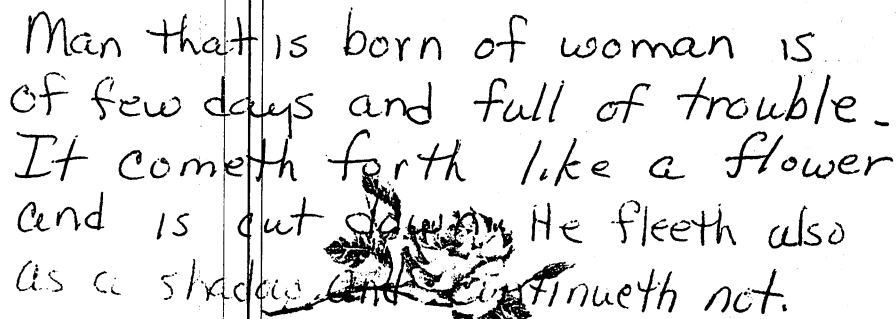 Man that is born of woman is
of few days and full of trouble.
It cometh forth like a flower
and is cut down, He fleeth also
as a shadow and continueth not.